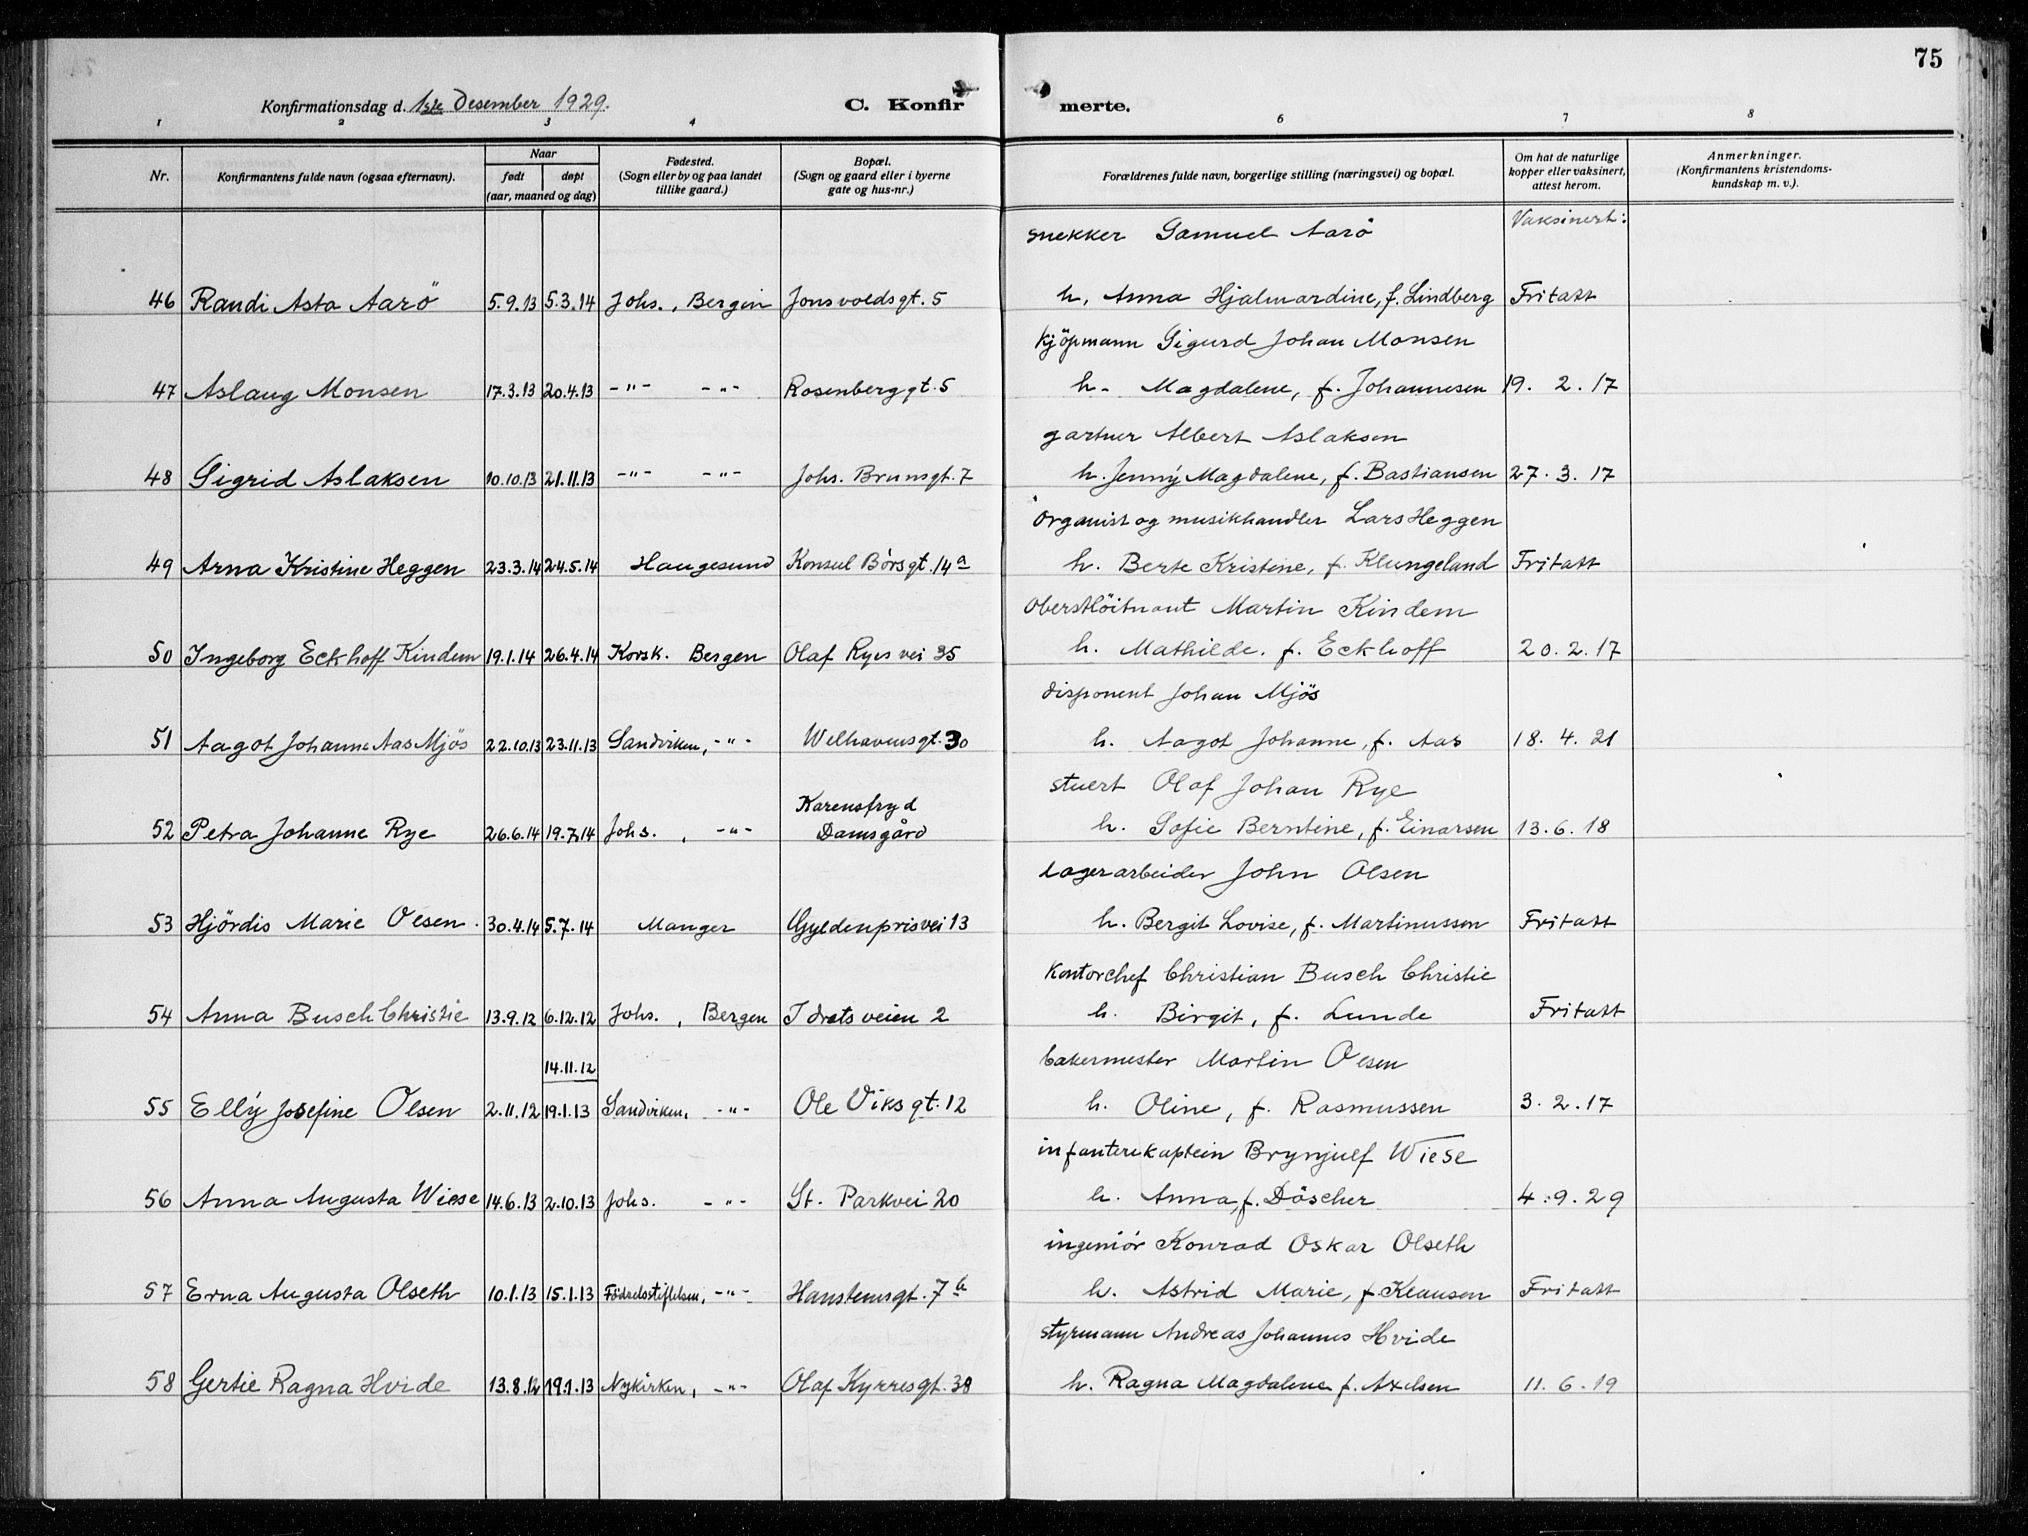 75
Konfirmationsdag d. 1ste Desember 1929. C. Konfirmerte.
1 2 3 4 6 7 8
Nr. Konfirmantens fulde navn (ogsaa efternavn). Naar født døpt (aar, maaned og dag) Fødested. (Sogn eller by og paa landet tillike gaard.) Bopæl. (Sogn og gaard eller i byerne gate og hus-nr.) Forældrenes fulde navn, borgerlige stilling (næringsvei) og bopæl. Om hat de naturlige kopper eller vaksinert, attest herom. Anmerkninger. (Konfirmantens kristendomskundskap m. v.).
snekker Samuel Aarö Vaksinert:
46 Randi Asta Aarö 5.9.13 5.3.14 Johs., Bergen Jonsvoldsgt. 5 h. Anna Hjalmardine, f. Lindberg Fritatt
kjöpmann Sigurd Johan Monsen
47 Aslaug Monsen 17.3.13 20.4.13 -"- -"- Rosenberggt. 5 h. Magdalene, f. Johannesen 19. 2. 17
gartner Albert Aslaksen
48 Sigrid Aslaksen 10.10.13 21.11.13 -"- -"- Johs. Brunsgt. 7 h. Jenny Magdalene, f. Bastiansen 27. 3. 17
Organist og musikhandler Lars Heggen
49 Arna Kristine Heggen 23.3.14 24.5.14 Haugesund Konsul Börsgt. 14a h. Berte Kristine, f. Klungeland Fritatt
Oberstlöitnant Martin Kindem
50 Ingeborg Eckhoff Kindem 19.1.14 26.4.14 Korsk. Bergen Olaf Ryes vei 35 h. Mathilde. f. Eckhoff 20. 2. 17
disponent Johan Mjös
51 Aagot Johanne Aas Mjös 22.10.13 23.11.13 Sandviken, -"- Welhavensgt. 30 h. Aagot Johanne, f. Aas 18. 4. 21
stuert Olaf Johan Rye
Karensfryd
52 Petra Johanne Rye 26.6.14 19.7.14 Johs., -"- Damsgård h. Sofie Berntine, f. Einarsen 13. 6. 18
Lagerarbeider John Olsen
53 Hjördis Marie Olsen. 30.4.14 5.7.14 Manger Gyldenprisvei 13 h. Bergit Lovise, f. Martinussen Fritatt
Kontorchef Christian Busch Christie
54 Anna Busch Christie 13.9.12 6.12.12 Johs., Bergen Idrætsveien 2 h. Birgit, f. Lunde Fritatt
14.11.12 bakermester Martin Olsen
55 Elly Josefine Olsen 2.11.12 19.1.13 Sandviken, -"- Ole Viksgt. 12 h. Oline, f. Rasmussen 3. 2. 17
infanterikaptein Brynjulf Wiese
56 Anna Augusta Wiese 14.6.13 2.10.13 Johs. -"- St. Parkvei 20 h. Anna, f. Döscher 4. 9. 29
ingeniör Konrad Oskar Olseth
57 Erna Augusta Olseth 10.1.13 15.1.13 Födselsstiftelsen, -"- Hansteensgt. 7b h. Astrid Marie, f. Klausen Fritatt
styrmann Andreas Johannes Hvide
58 Gertie Ragna Hvide 13.8.12 19.1.13 Nykirken, -"- Olaf Kyrresgt. 38 h. Ragna Magdalene f. Axelsen 11. 6. 19